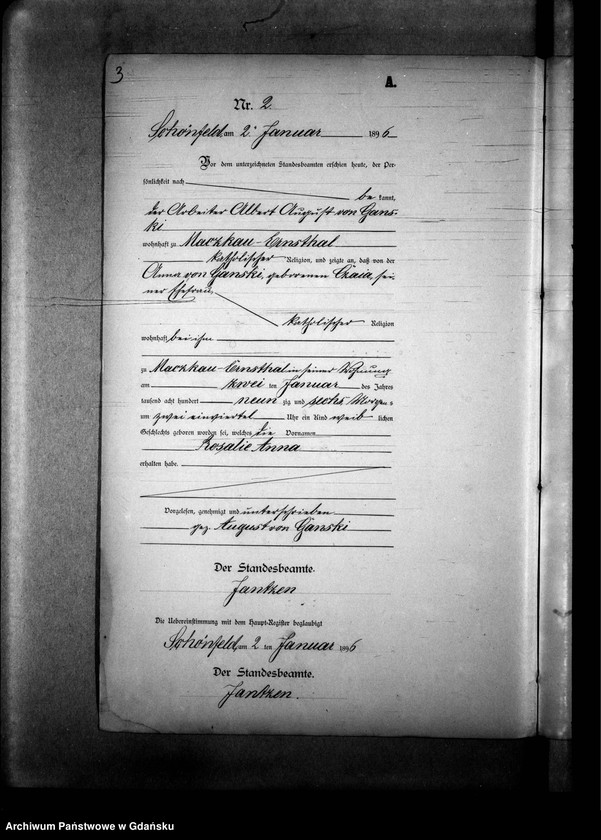 3
A.
Nr. 2.
Schönfeld am 2. Januar 1896
Vor dem unterzeichneten Standesbeamten erschien heute, der Per-
sönlichkeit nach
be kannt,
der Arbeiter Albert August von Gans-
ki
wohnhaft zu Maczkau-Ernsthal
katholischer Religion, und zeigte an, daß von der
Anna von Ganski, geborenen Czaia, sei-
ner Ehefrau,
katholischer Religion
wohnhaft bei ihm
zu Maczkau-Ernsthal in seiner Wohnung
am zwei ten Januar des Jahres
tausend acht hundert neun zig und sechs Morgens
um zwei einviertel Uhr ein Kind weib lichen
Geschlechts geboren worden sei, welches die Vornamen
Rosalie Anna
erhalten habe.
Vorgelesen, genehmigt und unterschrieben
gez. August von Ganski
Der Standesbeamte.
Jantzen
Die Uebereinstimmung mit dem Haupt-Register beglaubigt
Schönfeld am 2 ten Januar 1896
Der Standesbeamte.
Jantzen.
Archiwum Państwowe w Gdańsku